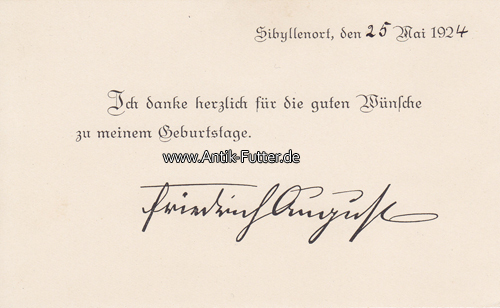 Sibyllenort, den 25 Mai 1924
Ich danke herzlich für die guten Wünsche
zu meinem Geburtstage.
www.Antik-Futter.de
Friedrich August